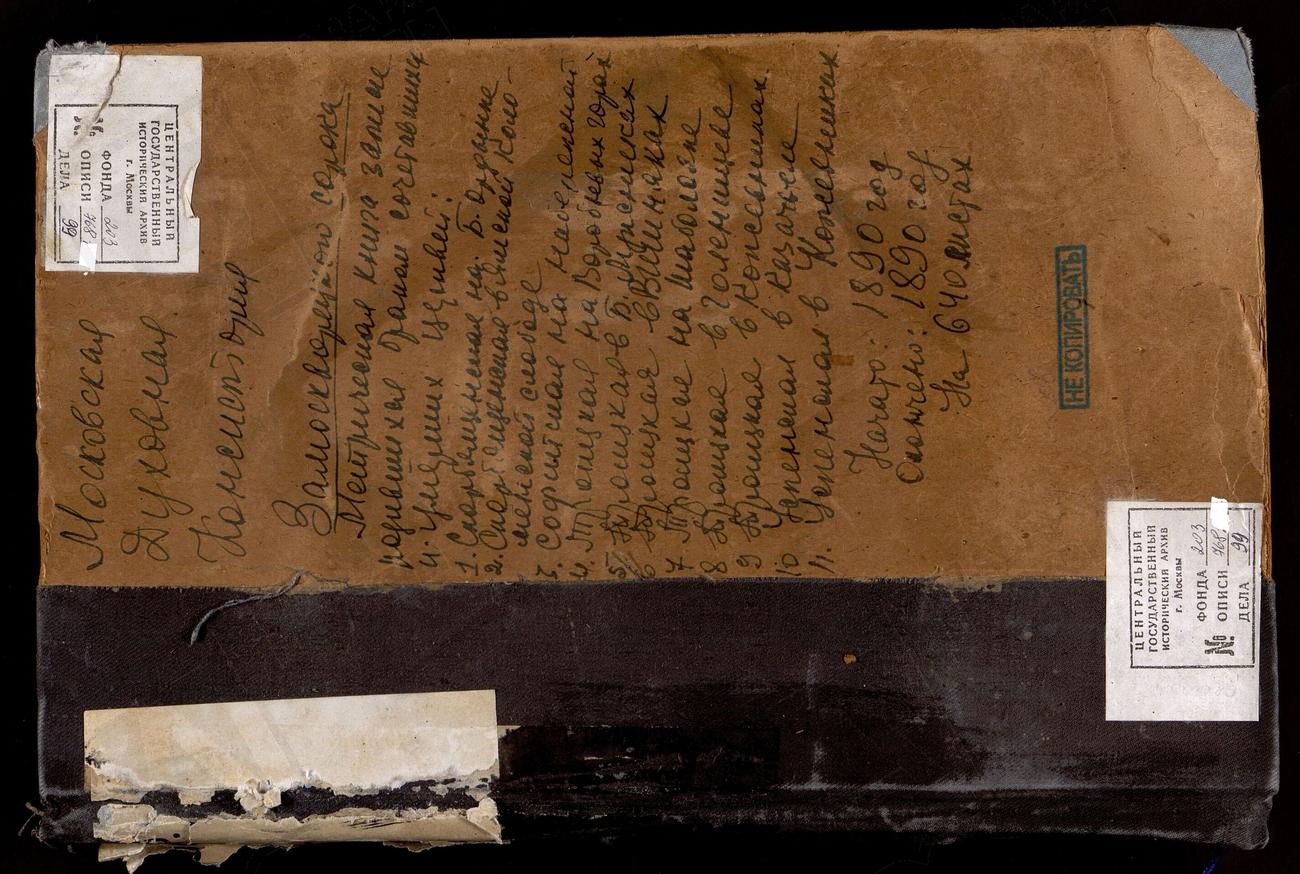 Московская
Духовная
Консистория
Замоскворецкого сорока
Метрическая книга записи
родившихся браком сочетавшихся
и умерших церквей:
1. Скорбященская на Б. Ордынке
2. Скорбященская в Ямской Коло-
менской слободе
3. Софийская на Набережной
4. Троицкая на Воробьевых горах
5. Троицкая в Б. Лужниках
6 Троицкая в Вишняках
7 Троицкая на Шаболовке
8 Троицкая в Голенищеве
9 Троицкая в Кожевниках
10 Успенская в Казачьем
11. Успенская в Кожевниках
Начато: 1890 год
Окончено: 1890 год
На 640 листах
НЕ КОПИРОВАТЬ
ЦЕНТРАЛЬНЫЙ
ГОСУДАРСТВЕННЫЙ
ИСТОРИЧЕСКИЙ АРХИВ
г. Москвы
ФОНДА 203
№ ОПИСИ 768
ДЕЛА 99
ЦЕНТРАЛЬНЫЙ
ГОСУДАРСТВЕННЫЙ
ИСТОРИЧЕСКИЙ АРХИВ
г. Москвы
ФОНДА 203
№ ОПИСИ 768
ДЕЛА 99